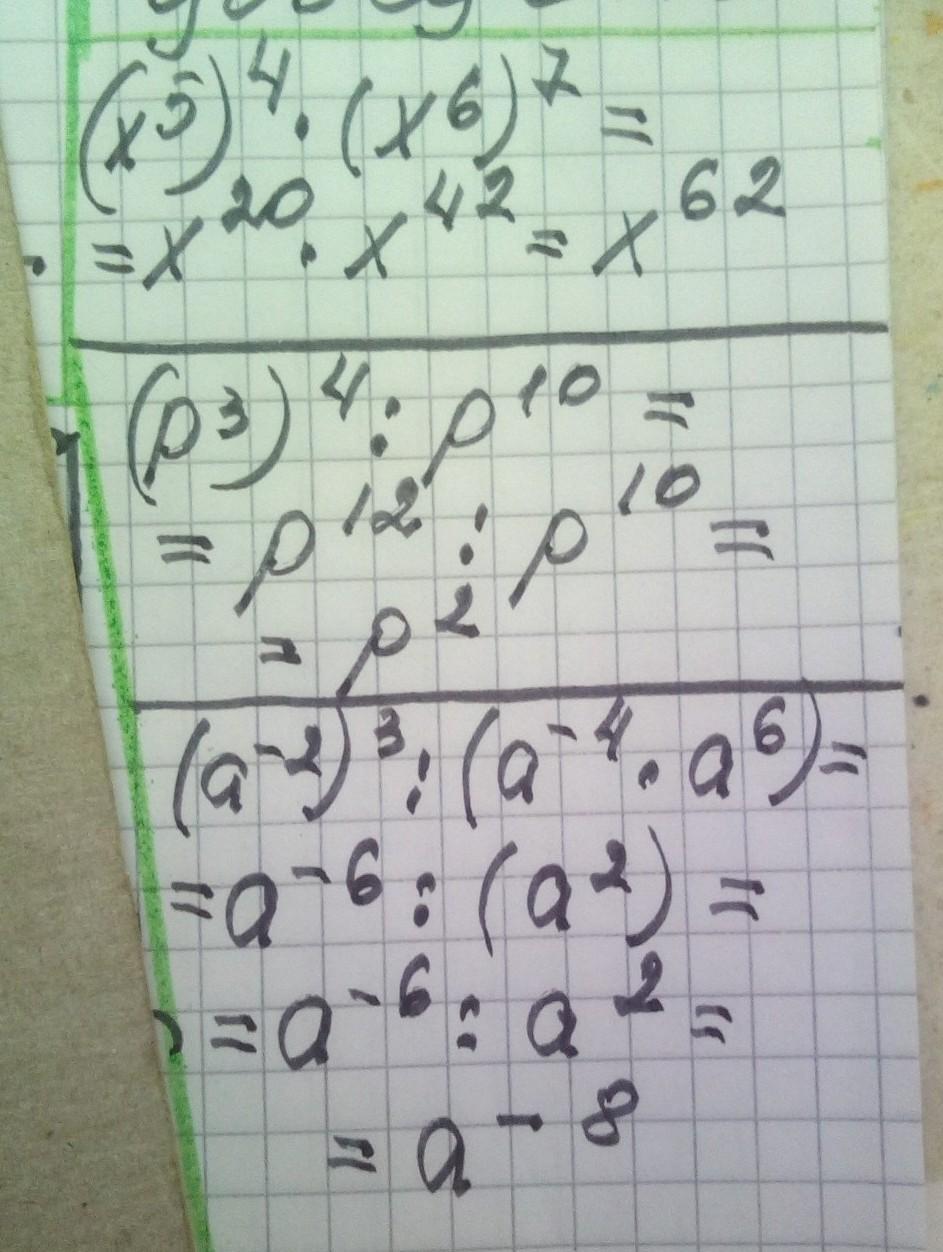 (x⁵)⁴ · (x⁶)⁷ =
= x²⁰ · x⁴² = x⁶²
(p³)⁴ : p¹⁰ =
= p¹² : p¹⁰ =
= p²
(a⁻²)³ : (a⁻⁴ · a⁶) =
= a⁻⁶ : (a²) =
= a⁻⁶ : a² =
= a⁻⁸